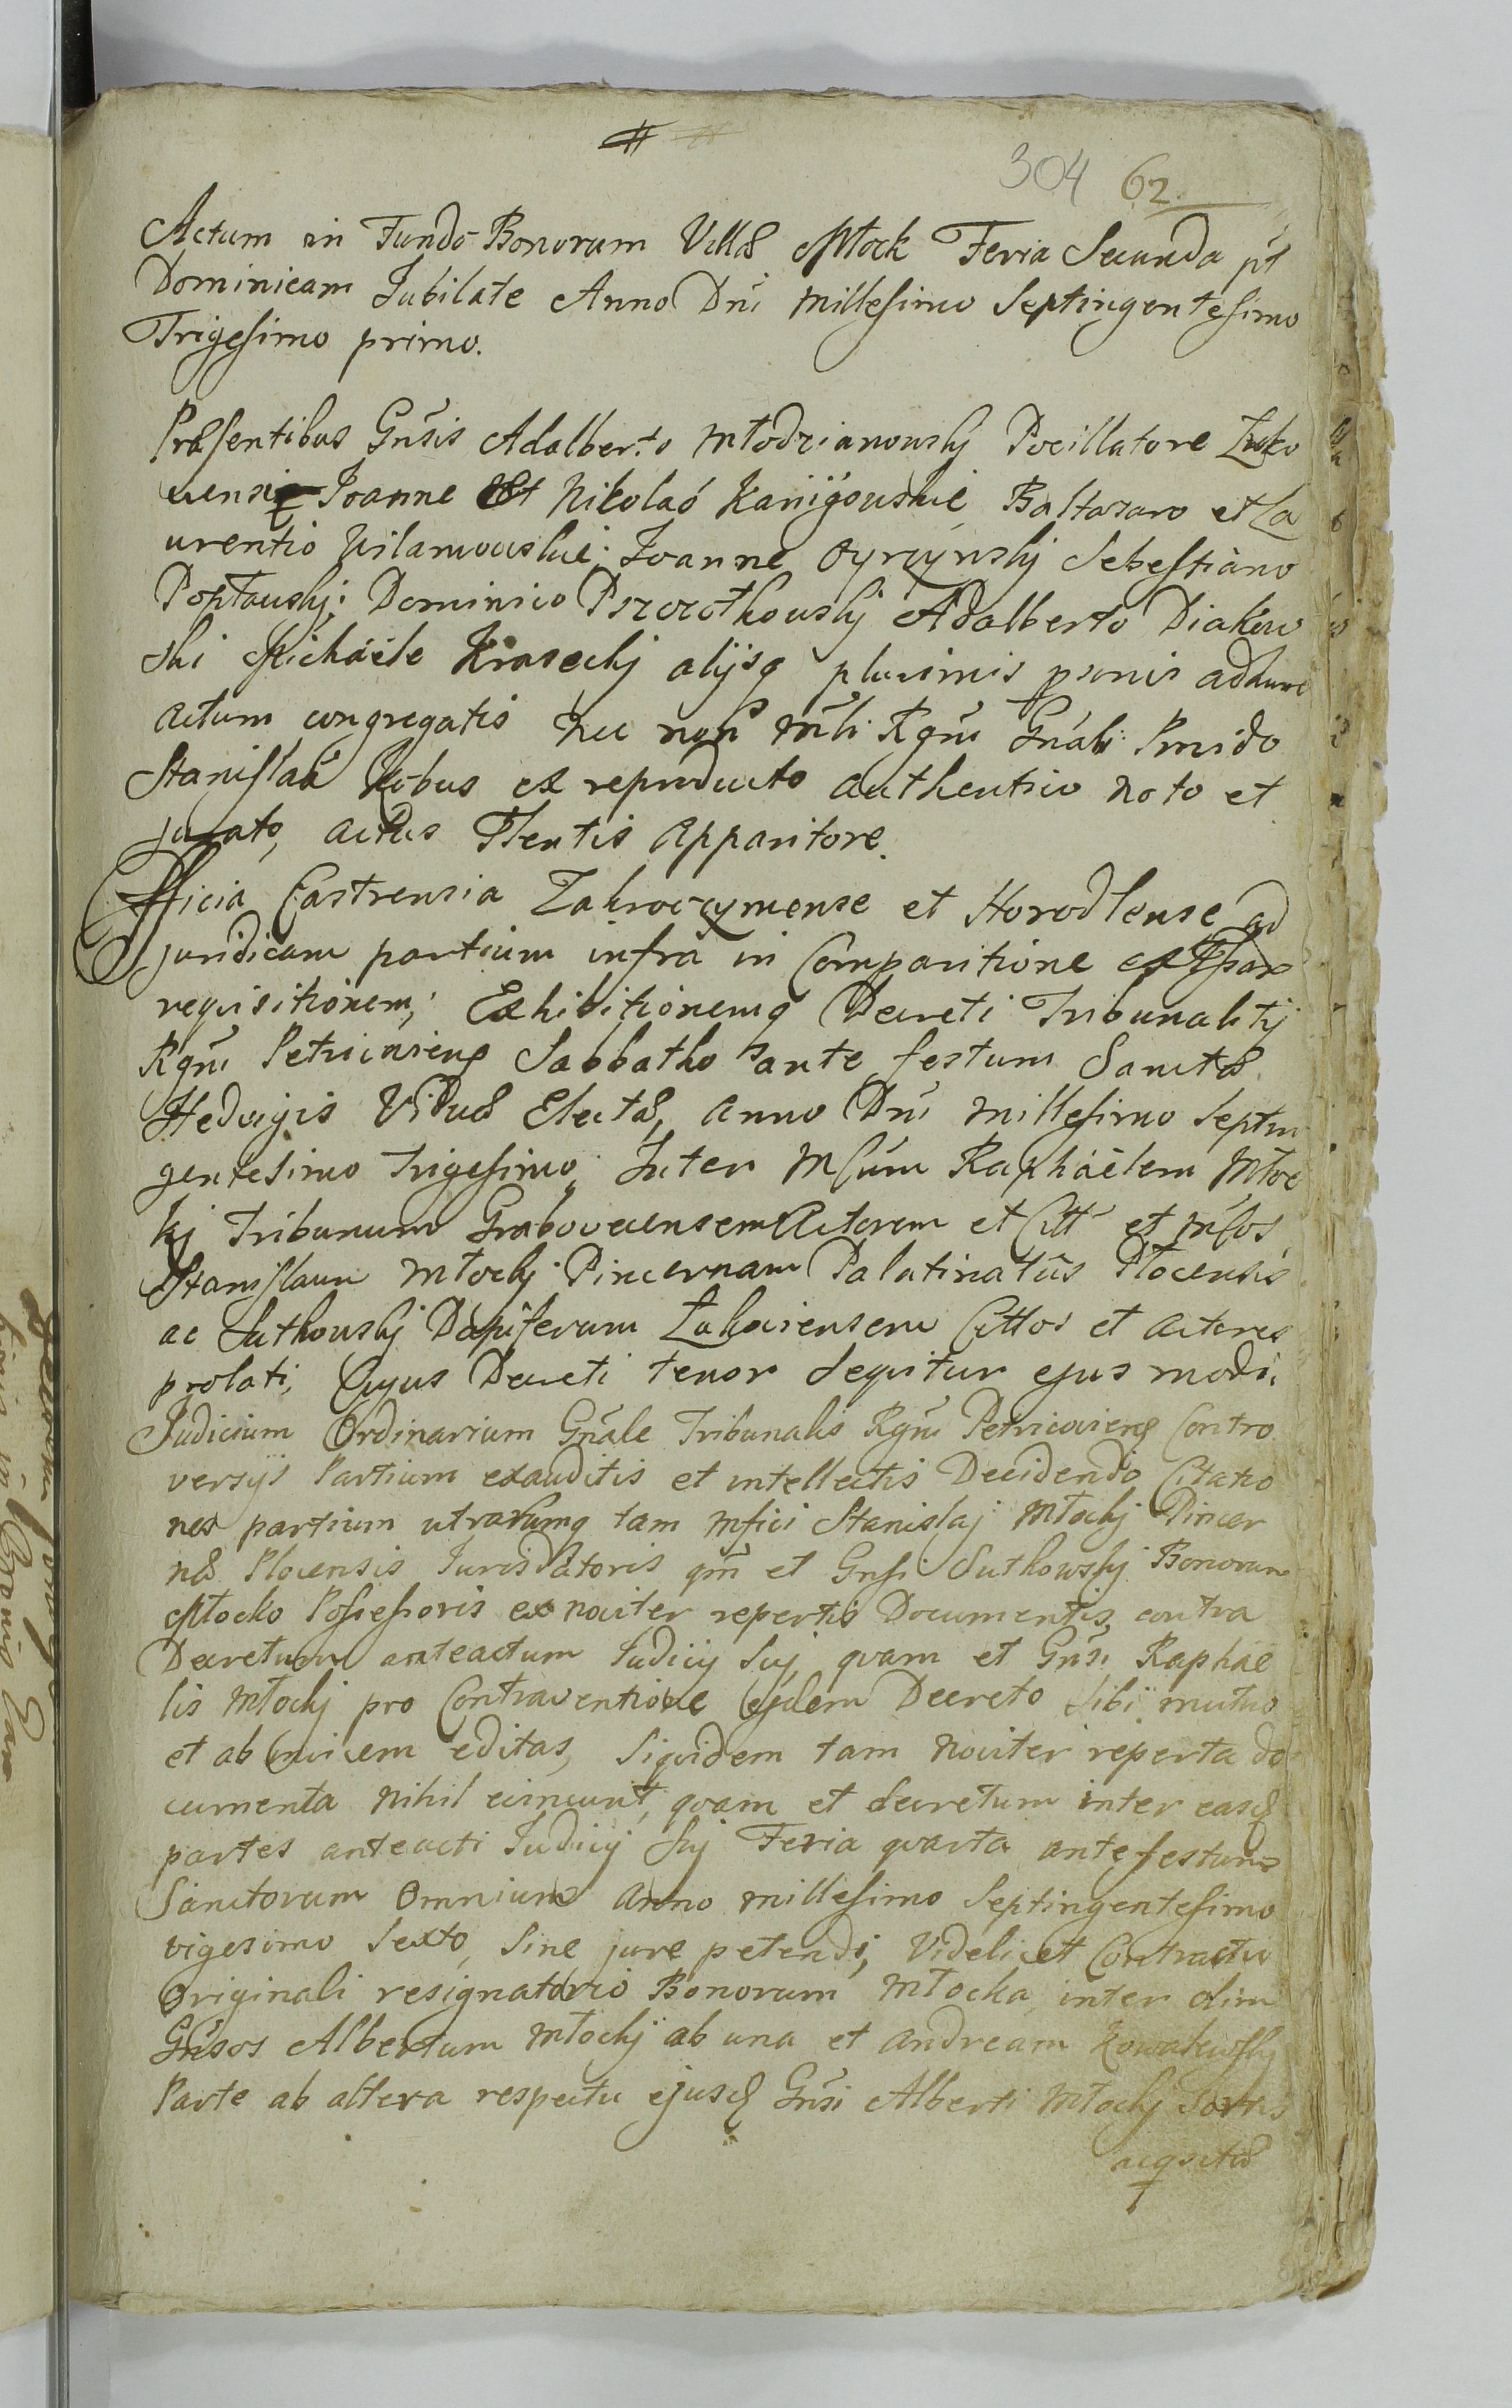 304 62
Actum in Fundo Bonorum Villæ Młock Feria Secunda pt
Dominicam Jubilate Anno Dni Millesimo Septingentesimo
Trigesimo primo.
Præsentibus Gnsis Adalberto Młodzianowskj Pocillatore
Joanne Et Nikolao Baltazaro et La
urentio Wilamowskie; Joanne Sebestiano
Popławskj; Dominico Adalberto Diakow
ski Michaële Krasockj alijsq plurimis psonis adhunc
actum congregatis nec non Mnli Rgni Gnali Pmido
Stanislao Kobus ex reproducto authentico noto et
jurato, actus Ptentis Apparitore.
Officia Castrensia Zakroczymense et Horodlense ad
juridicam partium infra in Comparitione
requisitionem; Exhibitionemq Decreti Tribunalitij
Rgni Petricoviens Sabbatho ante festum Sanctæ
Hedvigis Viduæ Electæ, Anno Dni Millesimo Septin
gentesimo Trigesimo, Inter Mfum Raphaëlem Młoc
kj Tribunum Grabovecensem Actorem et Citt et Mfos
Stanislaum Młockj Pincernam Palatinatus Płocensis
ac Sutkowskj Dapiferum Cittos et Actores
prolati, Cujus Decreti tenor sequitur ejus modi.
Judicium Ordinarium Gnale Tribunalis Rgni Petricoviens Contro
versijs Partium exauditis et intellectis Decidendo Citatio
nes partium utrarumq tam Mfici Stanislaj Młockj Pincer
næ Plocensis Jurisdatoris qm et Gnsi Sutkowskj Bonorum
Młocko Possessoris ex noviter repertis Documentis, contra
Decretum anteactum Judicij Suj, quam et Gnsi Raphae
lis Młockj pro Contraventione Ejdem Decreto sibi mutuo
et ab invicem editas, siquidem tam noviter reperta do
cumenta nihil evincunt, quam et decretum inter easd
partes anteacti Judicij Suj Feria quarta ante festum
Sanctorum Omnium Anno millesimo Septingentesimo
vigesimo Sexto, Sine jure petendi, Videlicet Contractu
Originali resignatorio Bonorum Młocka inter olim
Gnsos Albertum Młockj ab una et Andream Kowalewskj
Parte ab altera respectu ejusd Gnsi Alberti Młockj Sortis
acqsitæ